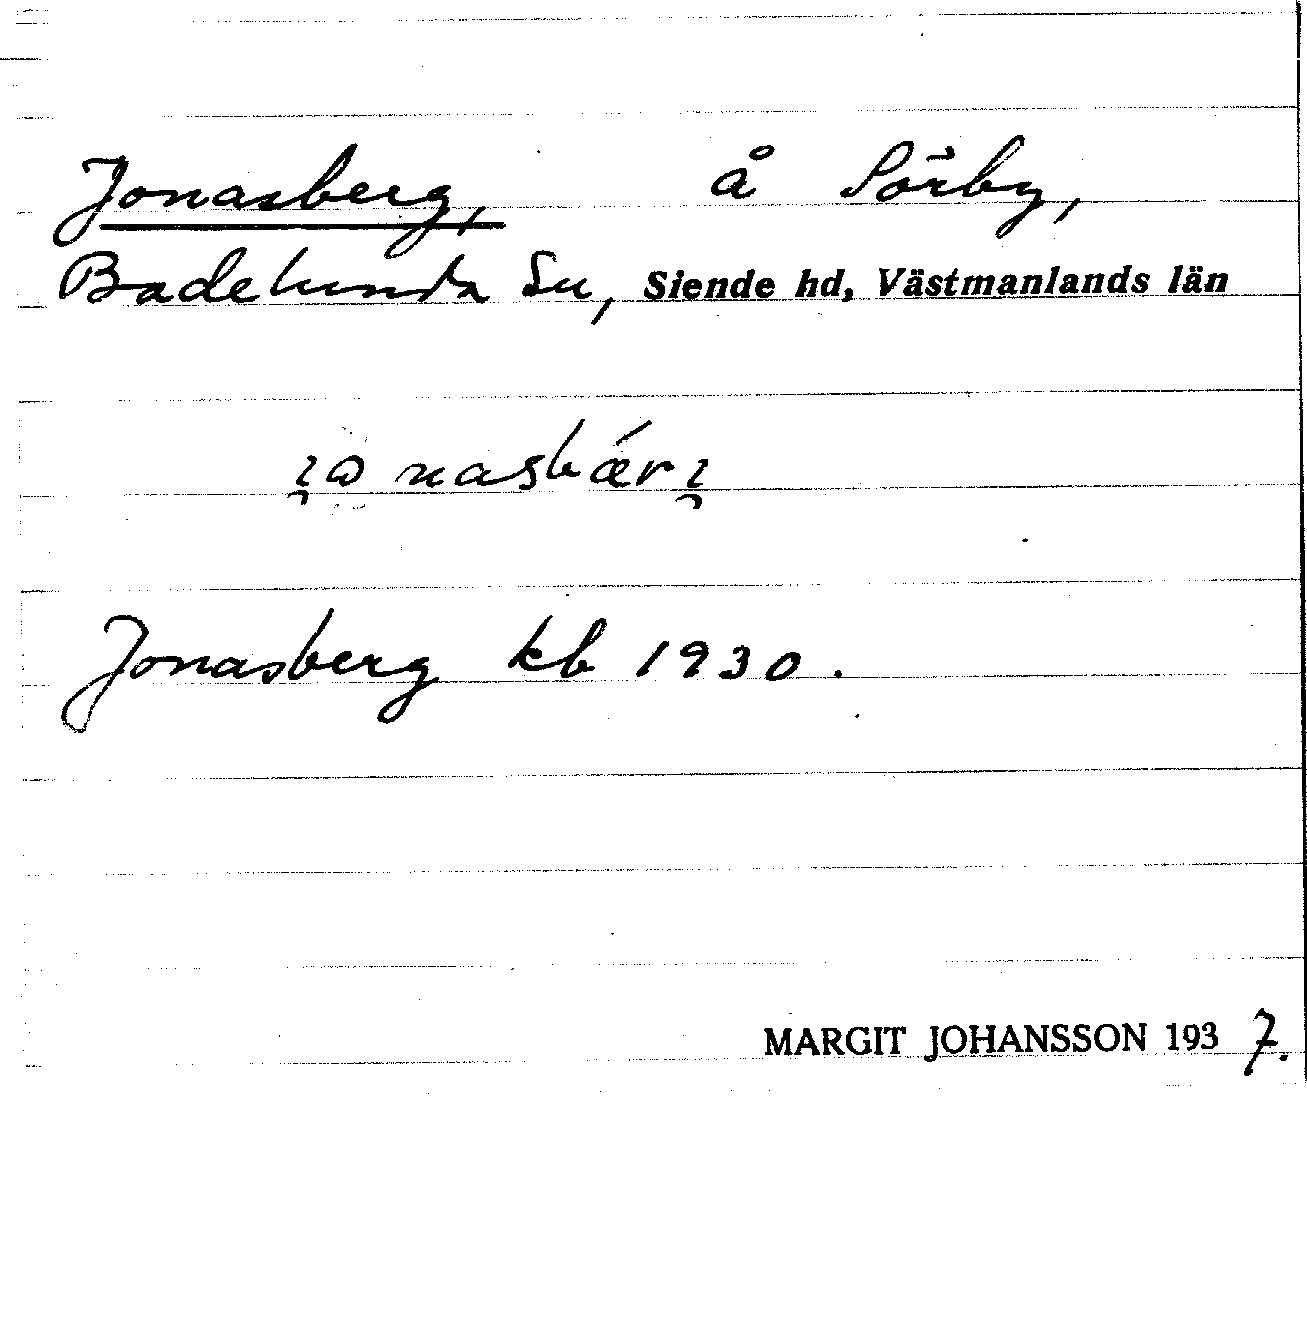 Jonasberg, å Sörby,
Badelunda sn, Siende hd, Västmanlands län
Jonasberg kb 1930.
MARGIT JOHANSSON 1937.